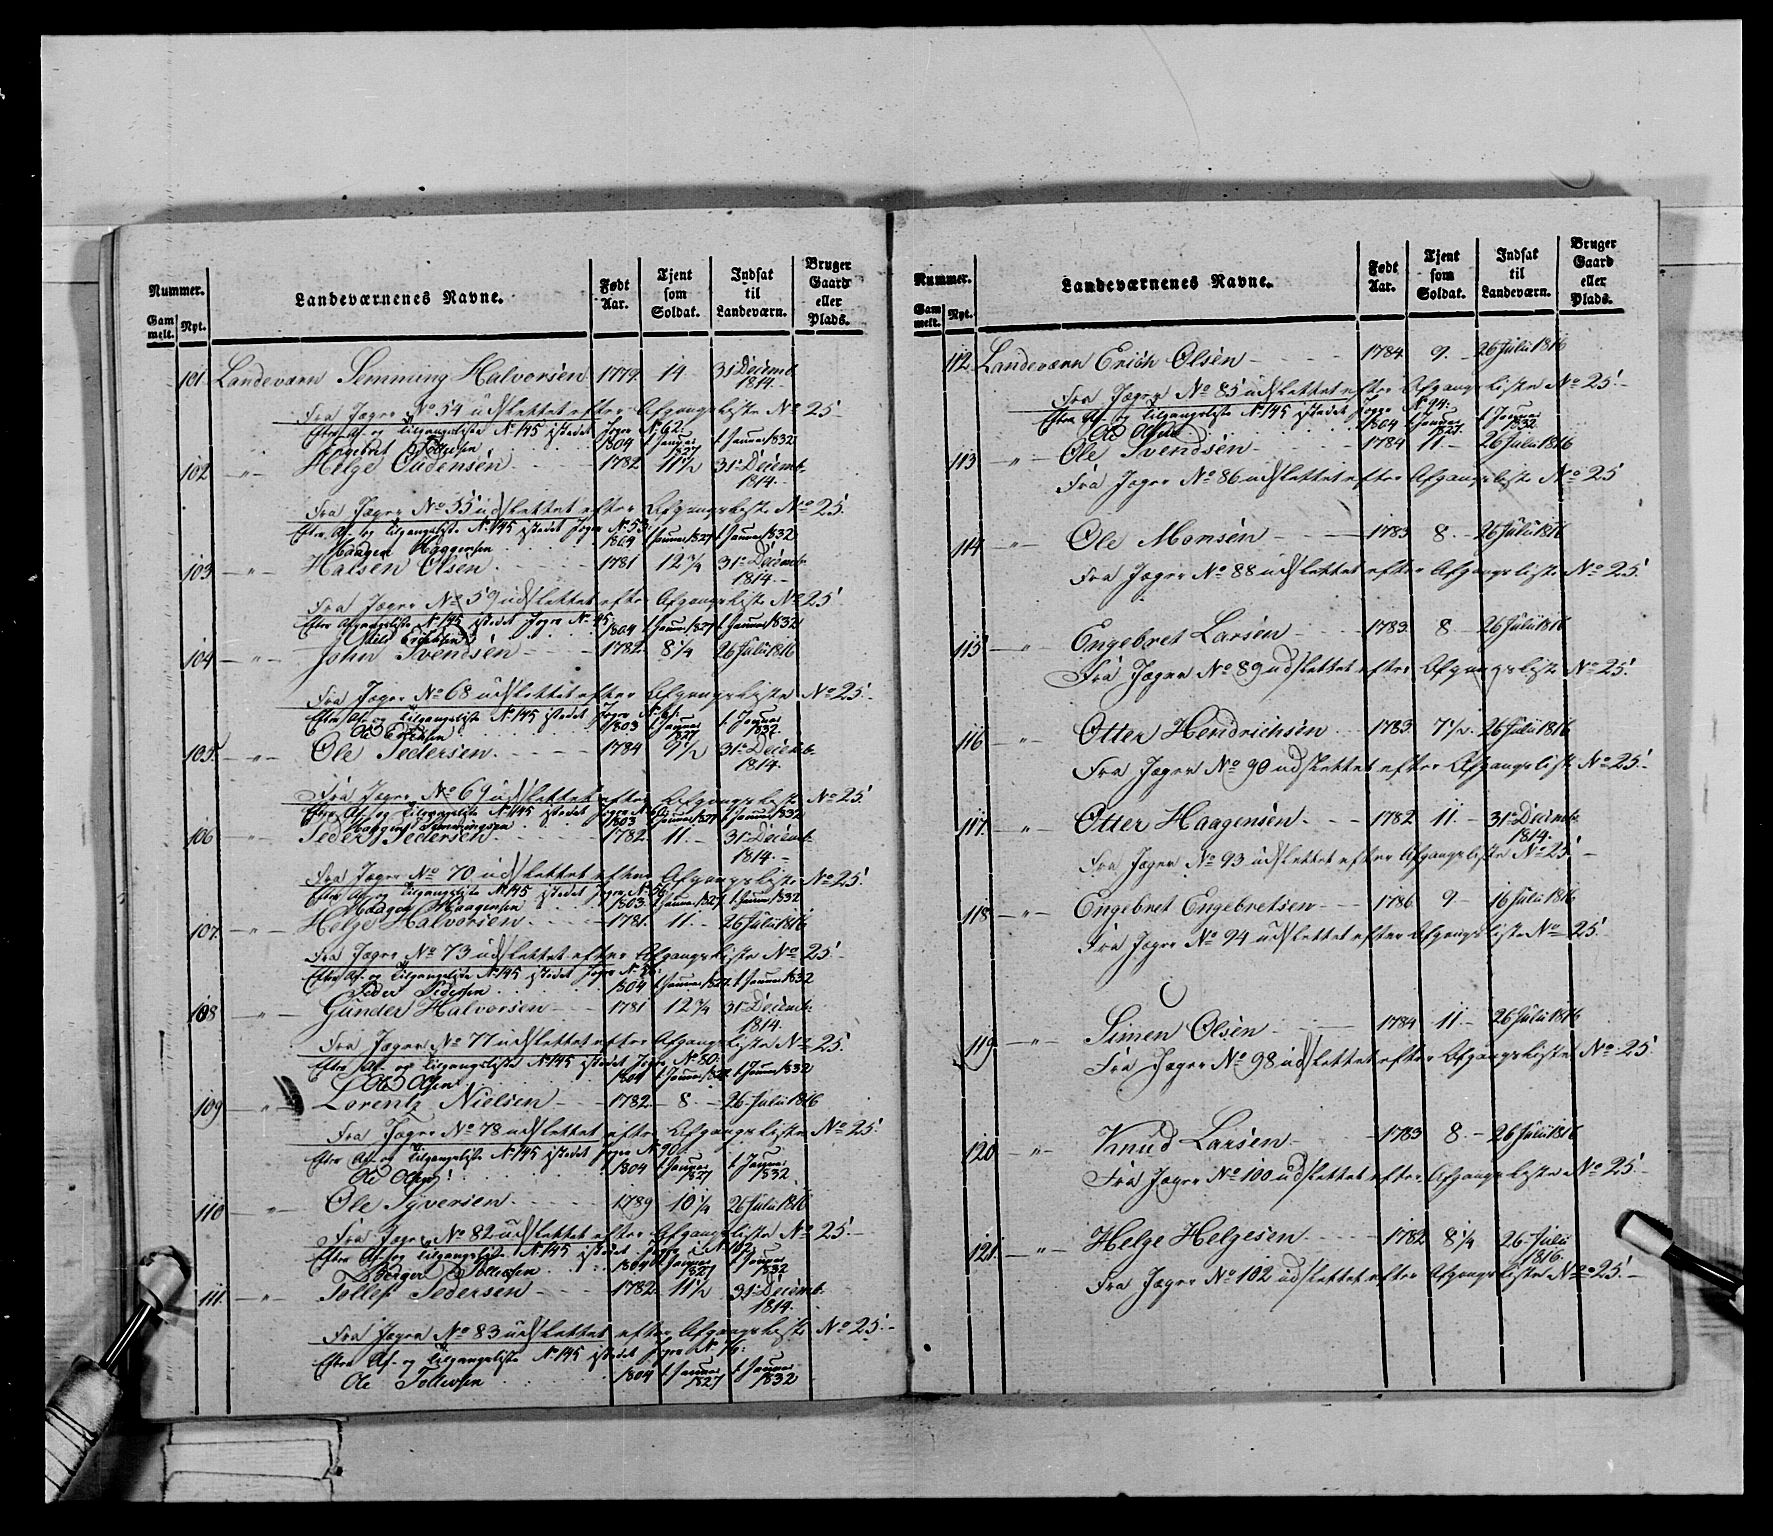 Nummer.
Gam
melt.
Nyt.
Landeværnenes Navne.
Født
Aar.
Tjent
som
Soldat.
Indsat
til
Landeværn.
Bruger
Gaard
eller
Plads.
101 Landeværn Semming Halvorsen 1779 14 31 Decemb.
1814.
Fra Jæger No 54 udslettet efter Afgangsliste No 25
Efter Af- og Tilgangsliste No 145 istedet Jæger No 62:
Engebret Tollefsen 1804 1 Januar 1827 1 Januar 1832
102 " Helge Gudensen 1782 11 1/2 31 Decemb.
1814.
Fra Jæger No 55 udslettet efter Afgangsliste No 25.
Efter Af- og Tilgangsliste No 145 istedet Jæger No 53:
Haagen Haagensen 1804 1 Januar 1827 1 Januar 1832
103 " Halsen Olsen 1781 12 3/4 31 Decemb.
1814.
Fra Jæger No 59 udslettet efter Afgangsliste No 25
Efter Afgangsliste No 145 istedet Jæger No 45
Niels Erichsen 1804 1 Januar 1827 1 Januar 1832
104 " John Svendsen 1782 8 1/4 26 Julii 1816
Fra Jæger No 68 udslettet efter Afgangsliste No 25.
Efter Af- og Tilgangsliste No 145 istedet Jæger No 61:
Ole Erichsen 1803 1 Januar 1827 1 Januar 1832
105 " Ole Pedersen 1784 9 1/2 31 Decemb.
1814.
Fra Jæger No 69 udslettet efter Afgangsliste No 25.
Efter Af- og Tilgangsliste No 145 istedet Jæger No
Haagen Semmingsen 1803 1 Januar 1827 1 Januar 1832
106 " Peder Pedersen 1782 11 31 Decemb.
1814.
Fra Jæger No 70 udslettet efter Afgangsliste No 25.
Efter Af- og Tilgangsliste No 145 istedet Jæger No 56
Haagen Haagensen 1803 1 Januar 1827 1 Januar 1832
107 " Helge Halvorsen 1781 11 26 Julii 1816
Fra Jæger No 73 udslettet efter Afgangsliste No 25.
Efter Af- og Tilgangsliste No 145 istedet Jæger No
Peder Pedersen 1804 1 Januar 1827 1 Januar 1832
108 " Gunder Halvorsen 1781 12 3/4 31 Decemb.
1814.
Fra Jæger No 77 udslettet efter Afgangsliste No 25.
Efter Af- og Tilgangsliste No 145 istedet Jæger No 80:
Ole Olsen 1804 1 Januar 1827 1 Januar 1832
109 " Lorentz Nielsen 1782 8 26 Julii 1816
Fra Jæger No 78 udslettet efter Afgangsliste No 25.
Efter Af- og Tilgangsliste No 145 istedet Jæger No 90
Ole Olsen 1804 1 Januar 1827 1 Januar 1832
110 " Ole Syversen 1789 10 1/4 26 Julii 1816
Fra Jæger No 82 udslettet efter Afgangsliste No 25.
Efter Af- og Tilgangsliste No 145 istedet Jæger No 102
Børger Tollefsen 1804 1 Januar 1827 1 Januar 1832
111 " Tollef Pedersen 1782 11 1/2 31 Decemb.
1814.
Fra Jæger No 83 udslettet efter Afgangsliste No 25.
Efter Af- og Tilgangsliste No 145 istedet Jæger No 76:
Ole Tollevsen 1804 1 Januar 1827 1 Januar 1832
Nummer.
Gam
melt.
Nyt.
Landeværnenes Navne.
Født
Aar.
Tjent
som
Soldat.
Indsat
til
Landeværn.
Bruger
Gaard
eller
Plads.
112 Landeværn Erich Olsen 1784 9 26 Julii 1816
Fra Jæger No 85 udslettet efter Afgangsliste No 25.
Efter Af- og Tilgangsliste No 145 istedet Jæger No 94:
Ole Olsen 1804 1 Januar 1827 1 Januar 1832
113 " Ole Svendsen 1784 11 26 Julii 1816
Fra Jæger No 86 udslettet efter Afgangsliste No 25
114 " Ole Monsen 1783 8 26 Julii 1816
Fra Jæger No 88 udslettet efter Afgangsliste No 25.
115 " Engebret Larsen 1783 8 26 Julii 1816
Fra Jæger No 89 udslettet efter Afgangsliste No 25.
116 " Otter Hendrichsen 1783 7 1/2 26 Julii 1816
Fra Jæger No 90 udslettet efter Afgangsliste No 25.
117 " Otter Haagensen 1782 11 31 Decemb.
1814.
Fra Jæger No 93 udslettet efter Afgangsliste No 25
118 " Engebret Engebretsen 1786 9 16 Julii 1816
Fra Jæger No 94 udslettet efter Afgangsliste No 25
119 " Simen Olsen 1784 11 26 Julii 1816
Fra Jæger No 98 udslettet efter Afgangsliste No 25.
120 " Knud Larsen 1783 8 26 Julii 1816
Fra Jæger No 100 udslettet efter Afgangsliste No 25.
121 " Helge Helgesen 1782 8 1/4 26 Julii
1816.
Fra Jæger No 102 udslettet efter Afgangsliste No 25.